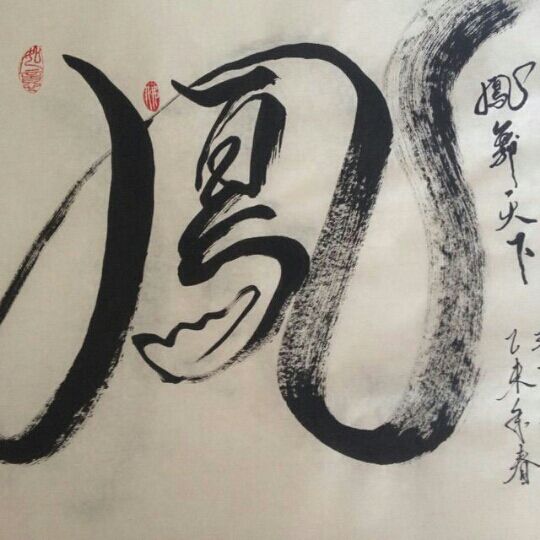 鳳
鳳舞天下
乙未年春